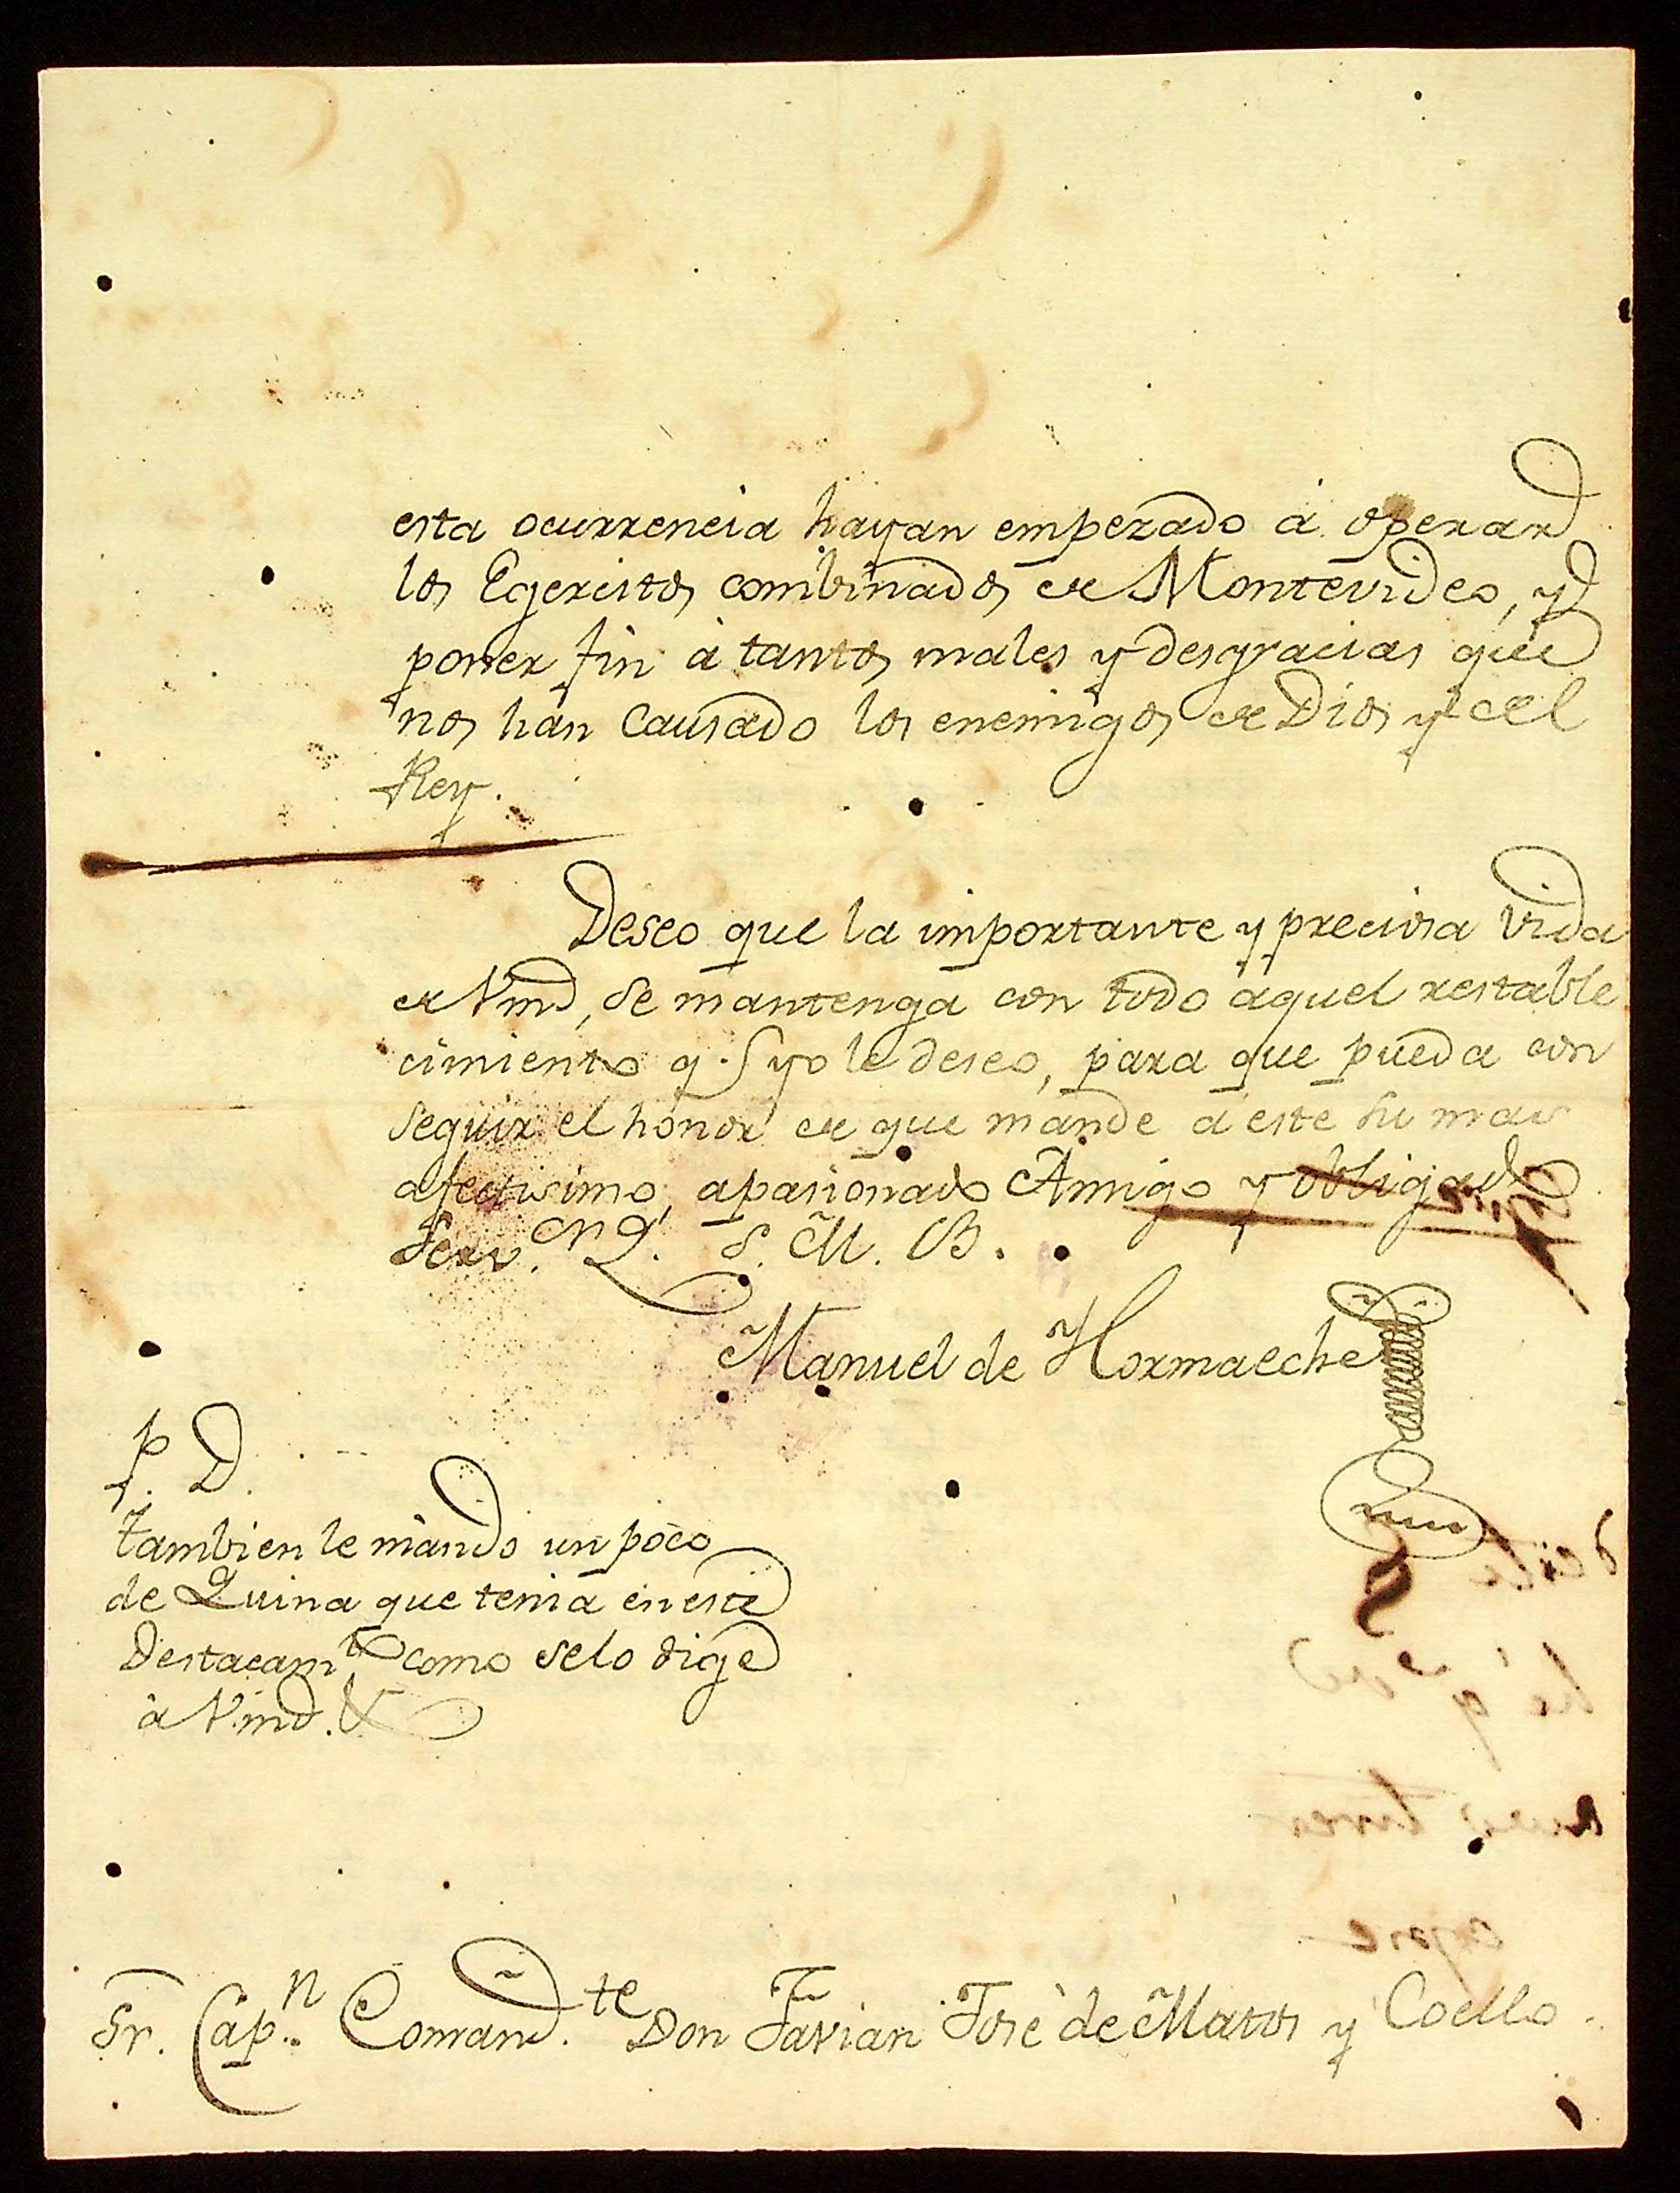 esta ocurrencia hayan empezado á operar
los Egercitos combinados de Montevideo, y
poner fin á tantos males y desgracias que
nos hán Causado los enemigos de Dios y del
Rey.
Deseo que la importante y preciosa vida
de Vmd, se mantenga con todo aquel restable
cimiento q.e yo le deseo, para que pueda con
seguir el honor de que mande á este su mas
afectisimo, apasionado Amigo y obligado
Serv.or Q. S. M. B.
Manuel de Hormaeche
P. D.
tambien le mando un poco
de Quina que tenia en este
Destacam.to como se lo dige
á Vmd.
Sr. Cap.n Comand.te Don Favian José de Matos y Coello.